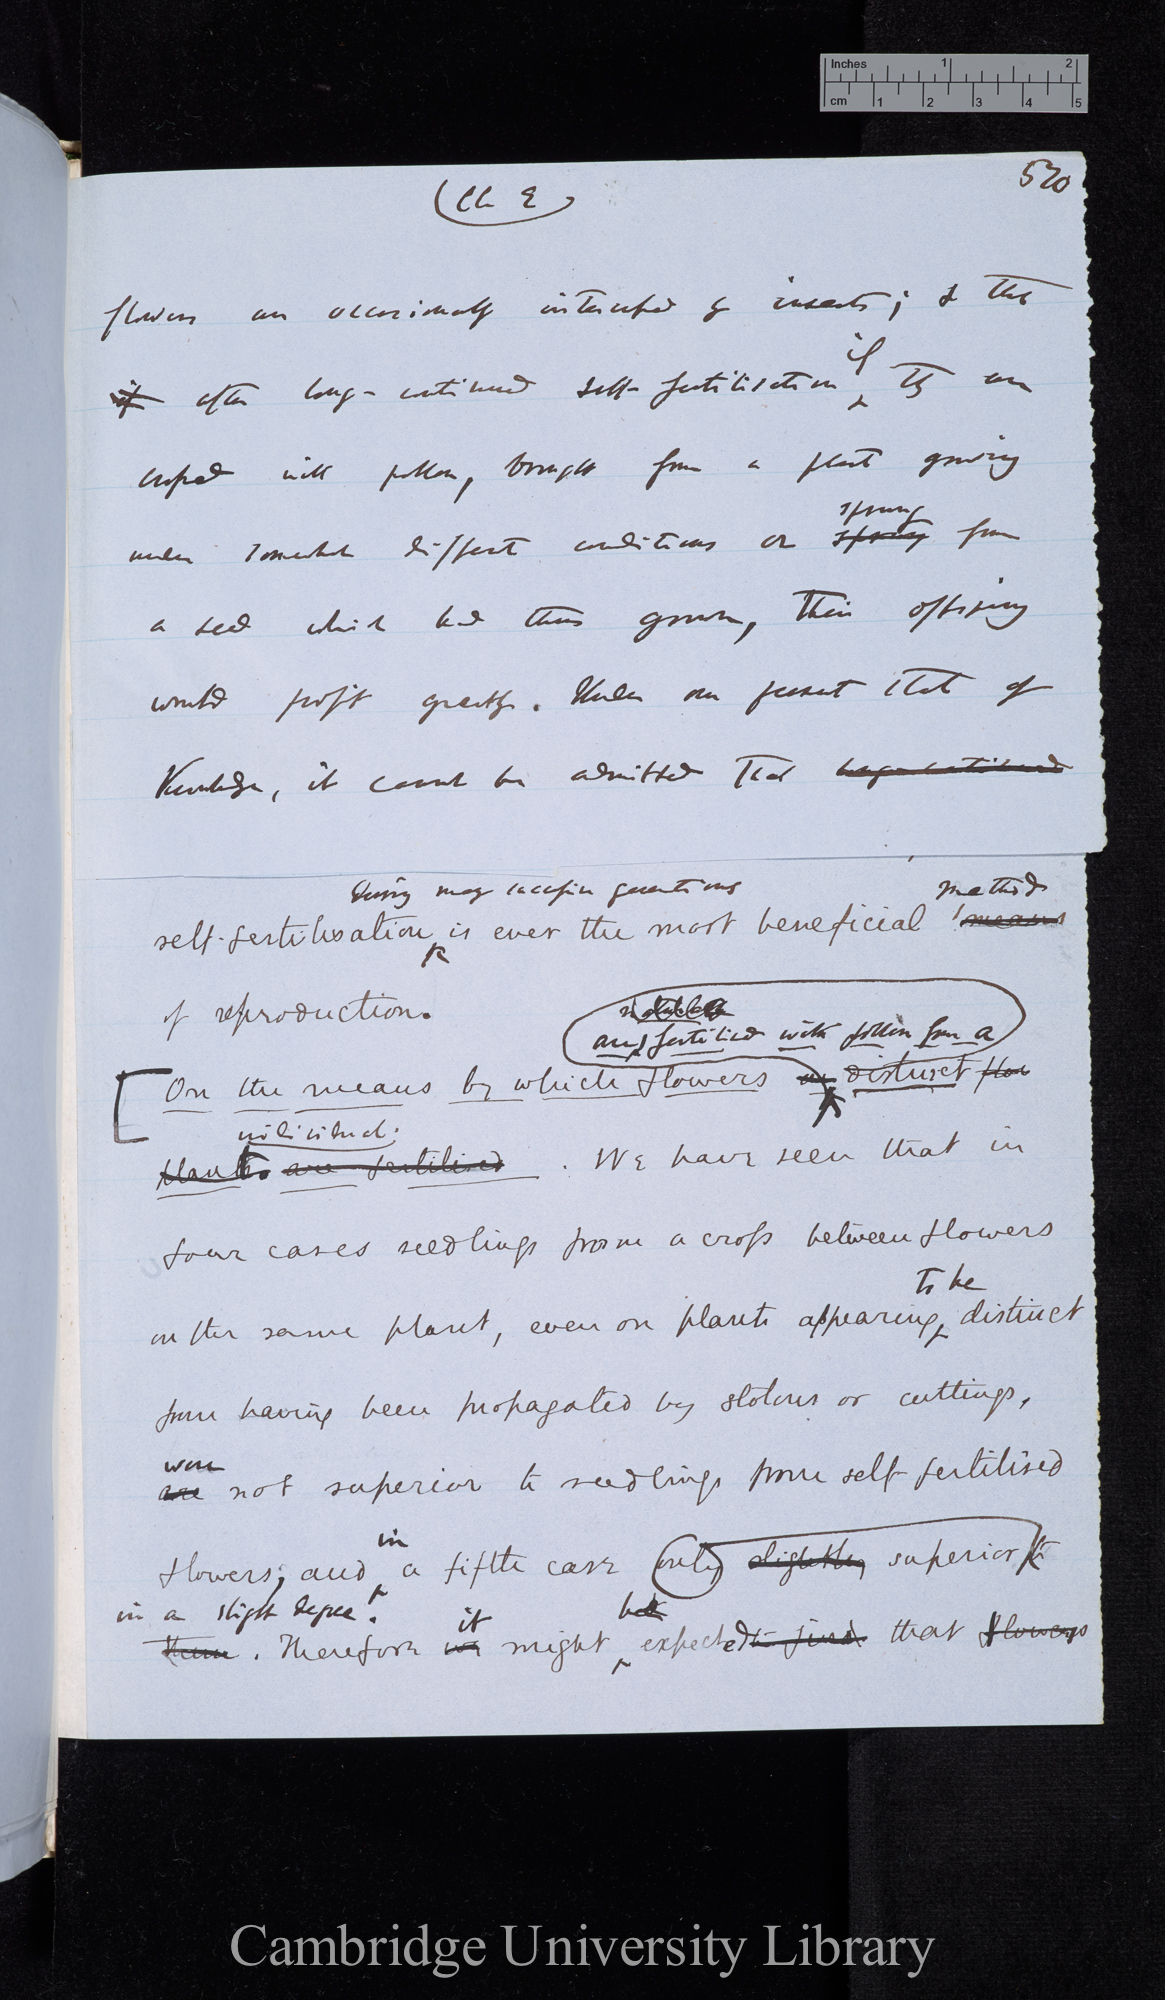 Inches 1 2
cm 1 2 3 4 5
Ch 9
520
flowers are occasionally intercrossed by insects; & that
if
if after long-continued self-fertilisation they are
crossed with pollen, brought from a plant growing
sprung
under somewhat different conditions or from
a seed which had thus grown, their offspring
would profit greatly. Under our present state of
knowledge, it cannot be admitted that long-continued
during many successive generations
methods
self-fertilisation is ever the most beneficial means
of reproduction.
are fertilised with pollen from a
On the means by which flowers distinct
individual:
plants are fertilised. We have seen that in
four cases seedlings from a cross between flowers
to be
on the same plant, even on plants appearing distinct
from having been propagated by stolons or cuttings,
were
are not superior to seedlings from self-fertilised
in
flowers; and a fifth case only slightly superior to
in a slight degree.
it
be
them. Therefore we might expected to find that flowers
Cambridge University Library